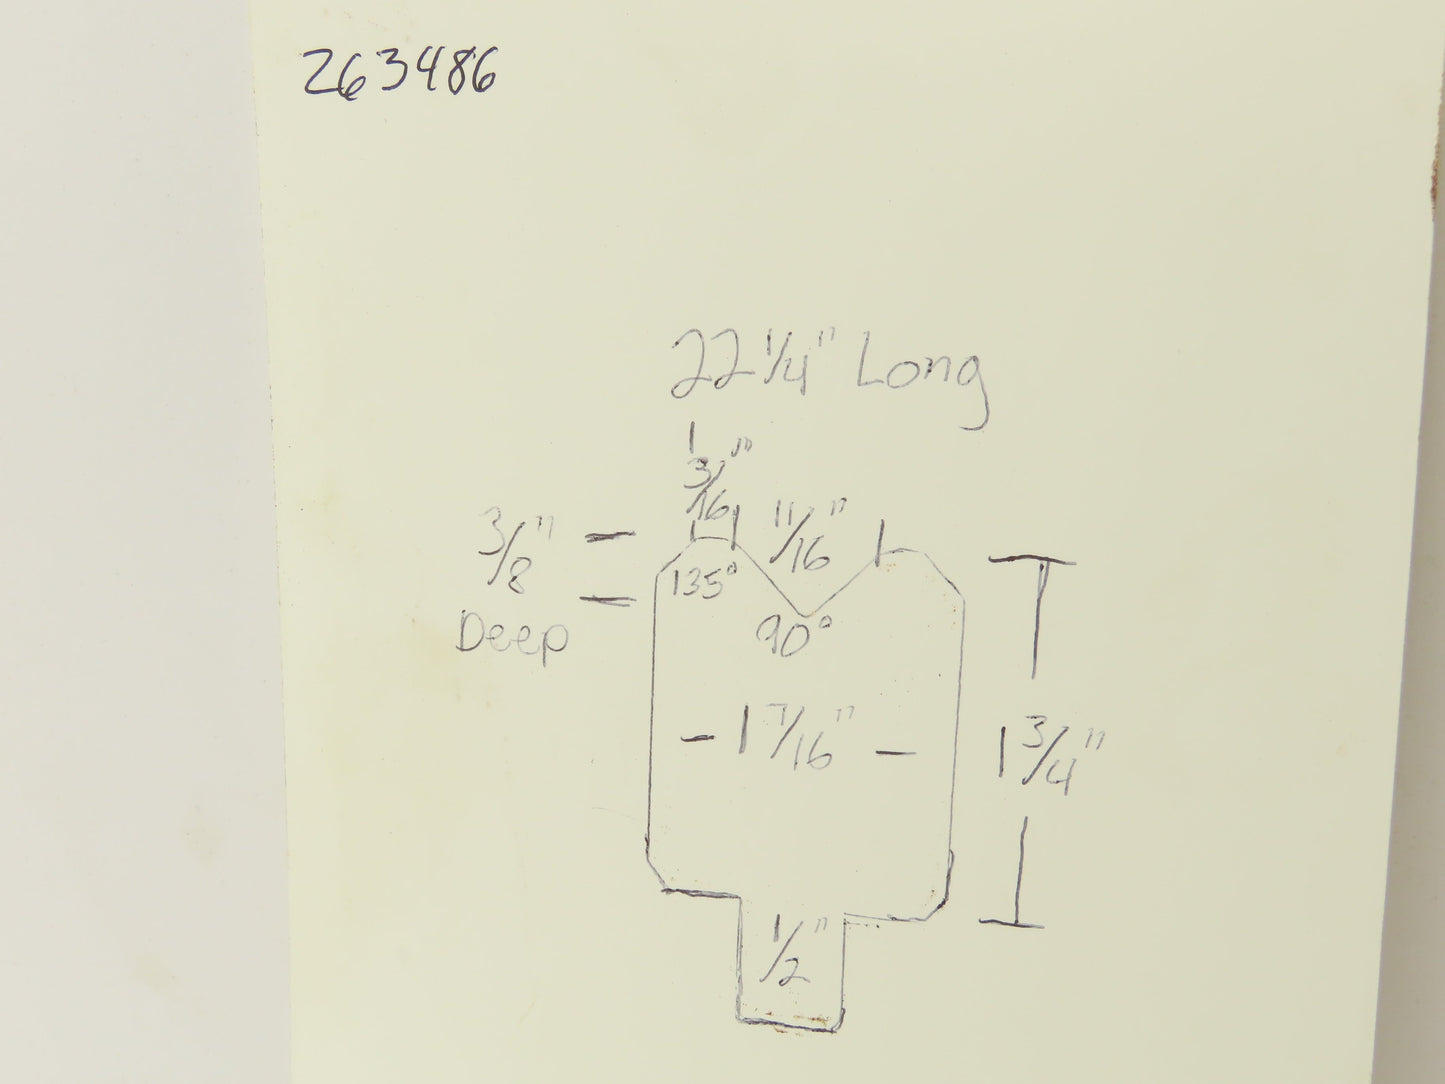 263486
22 1/4" Long
3/16"
11/16"
3/8"
Deep
135°
90°
1 7/16"
1 3/4"
1/2"